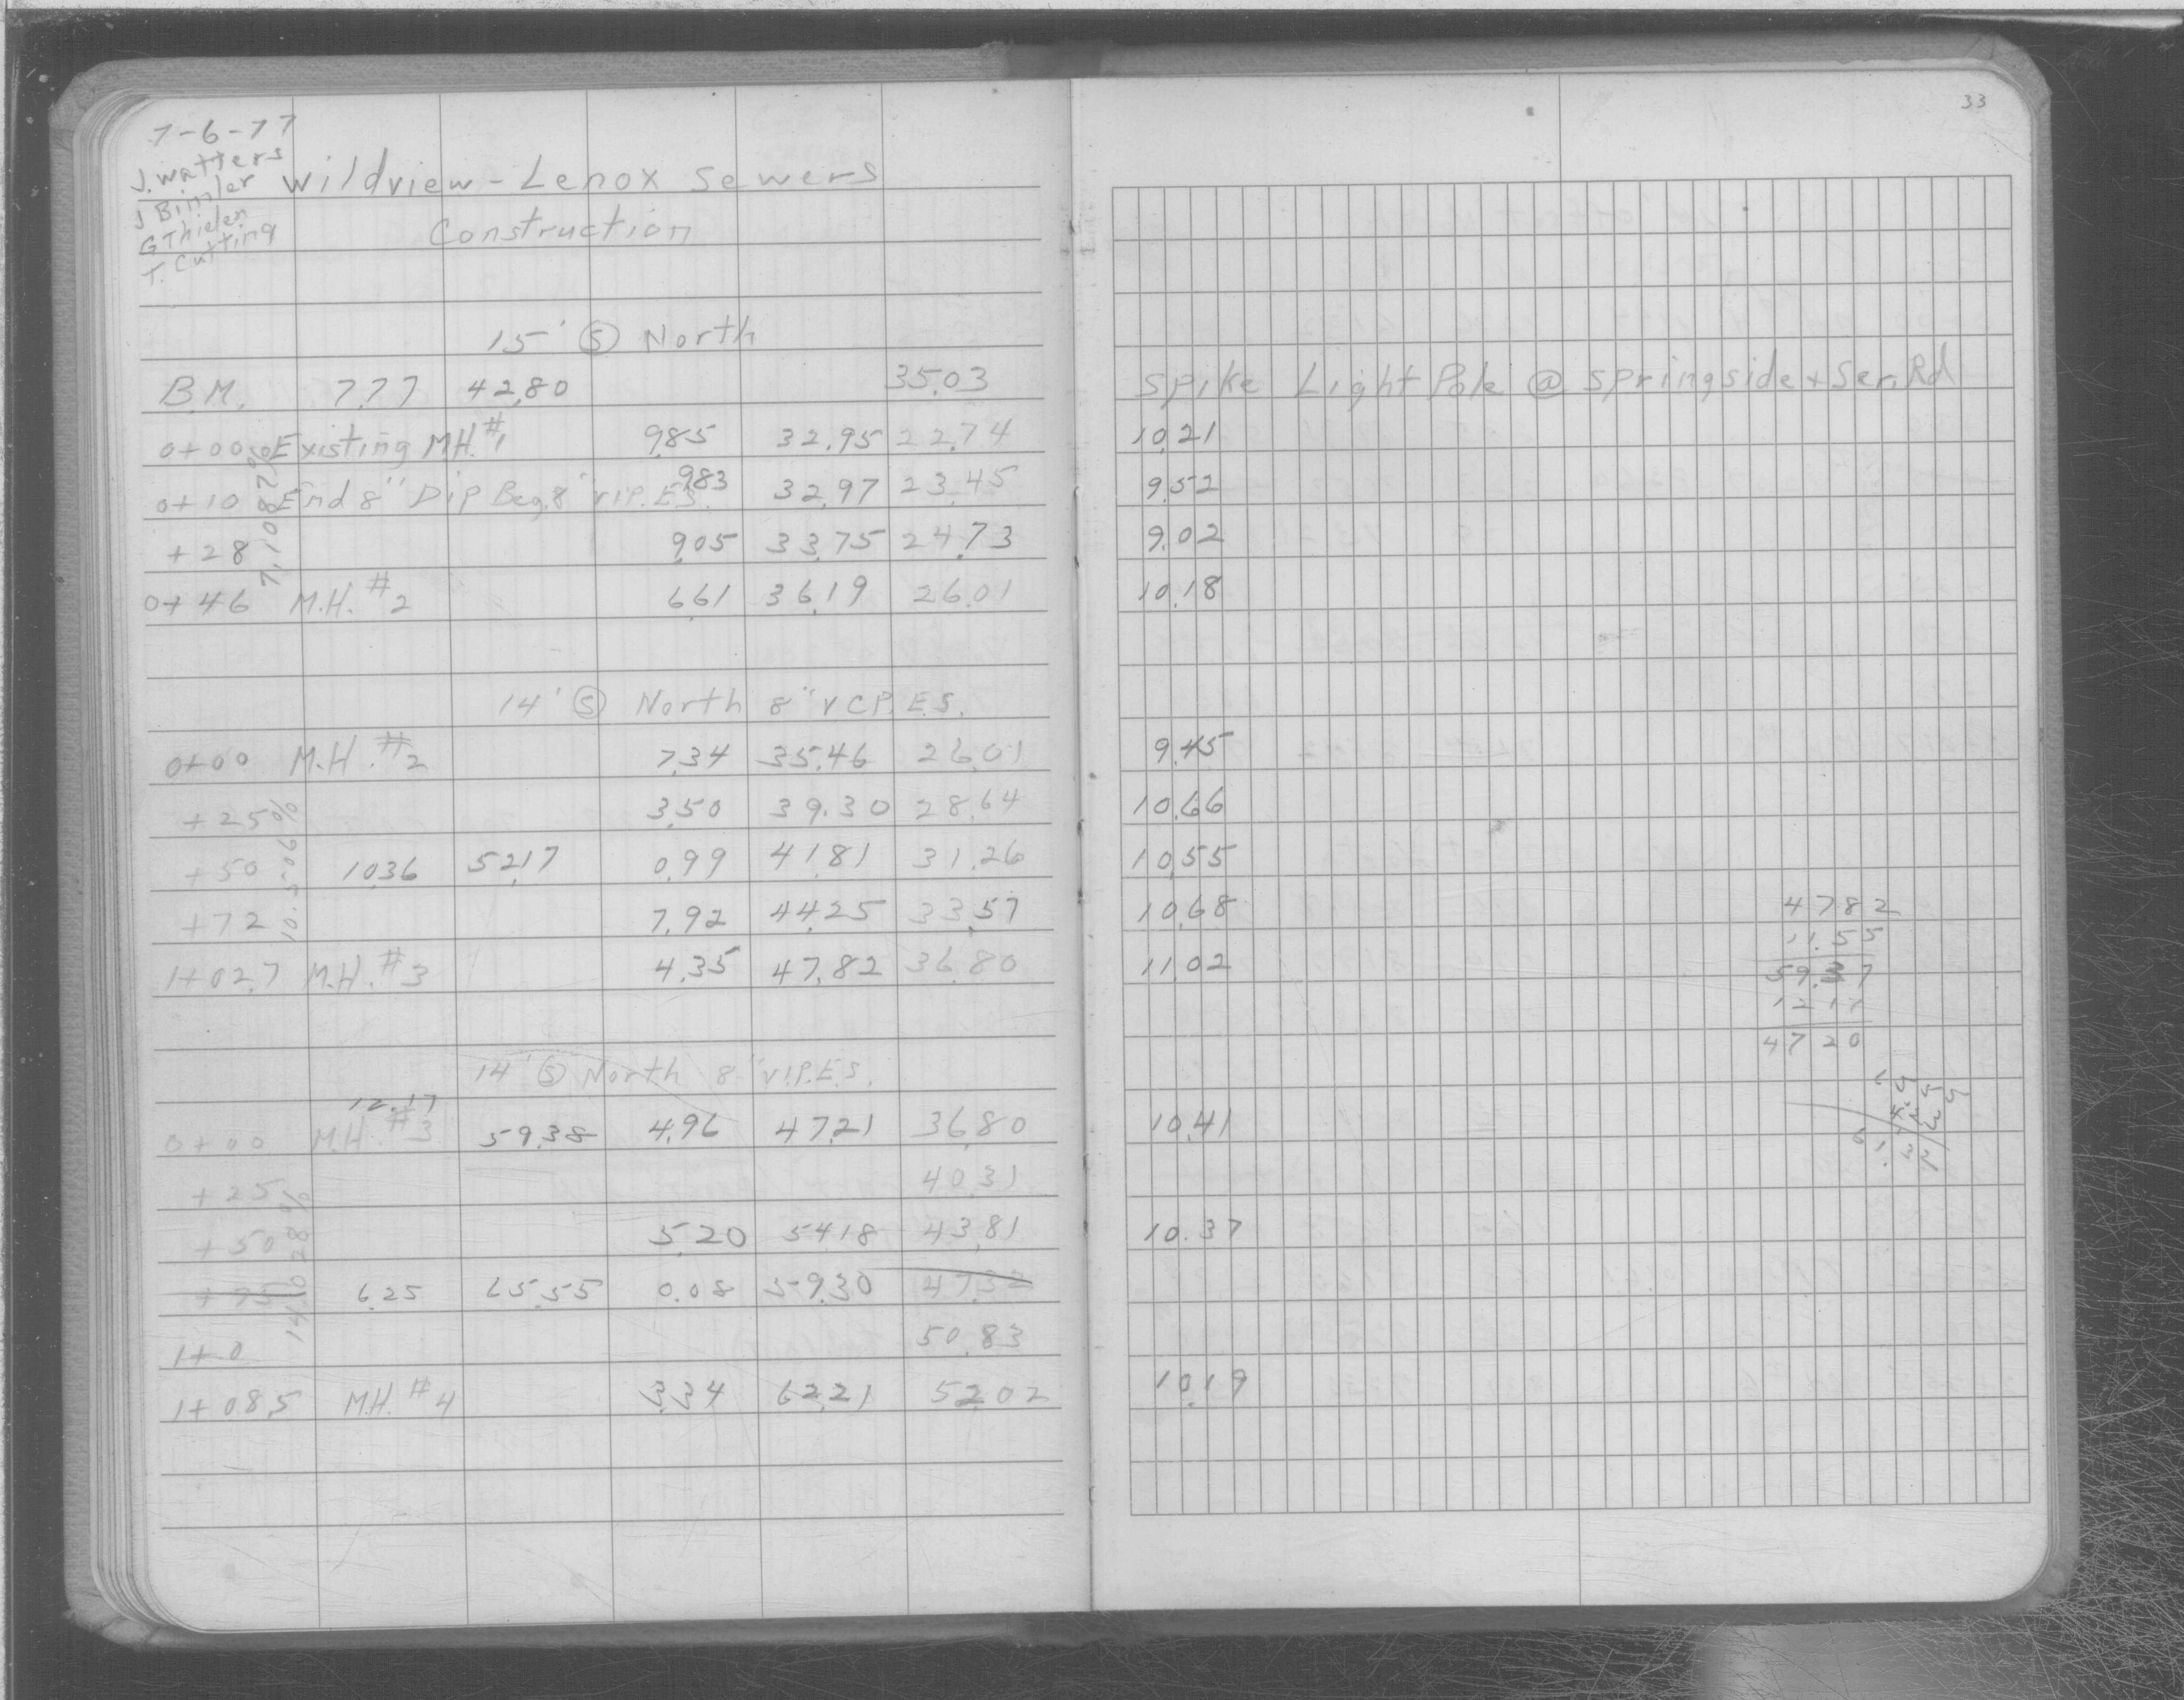 33
7-6-77
J. Watters
J Bimler
G Thielen
T. Cutting
Wildview - Lenox Sewers
Construction
15' Ⓢ North
B.M. 7.77 42.80 35.03 Spike Light Pole @ Springside + Ser. Rd
0+00 Existing M.H. #1 9.85 32.95 22.74 10.21
0+10 End 8" Dip Beg. 8" V.I.P. E.S. 9.83 32.97 23.45 9.52
+28 9.05 33.75 24.73 9.02
0+46 M.H. #2 6.61 36.19 26.01 10.18
7.1087%
14' Ⓢ North 8" V.C.P. E.S.
0+00 M.H. #2 7.34 35.46 26.01 9.45
+25 3.50 39.30 28.64 10.66
+50 10.36 52.17 0.99 41.81 31.26 10.55
+72 7.92 44.25 33.57 10.68
1+02.7 M.H. #3 4.35 47.82 36.80 11.02
10.506%
4782
11.55
59.37
1217
4720
14' Ⓢ North 8" V.I.P. E.S.
12.17
0+00 M.H. #3 59.38 4.96 47.21 36.80 10.41
+25 40.31
+50 5.20 54.18 43.81 10.37
+75 6.25 65.55 0.08 59.30 47.32
1+0 50.83
1+08.5 M.H. #4 3.34 62.21 52.02 10.19
14.028%